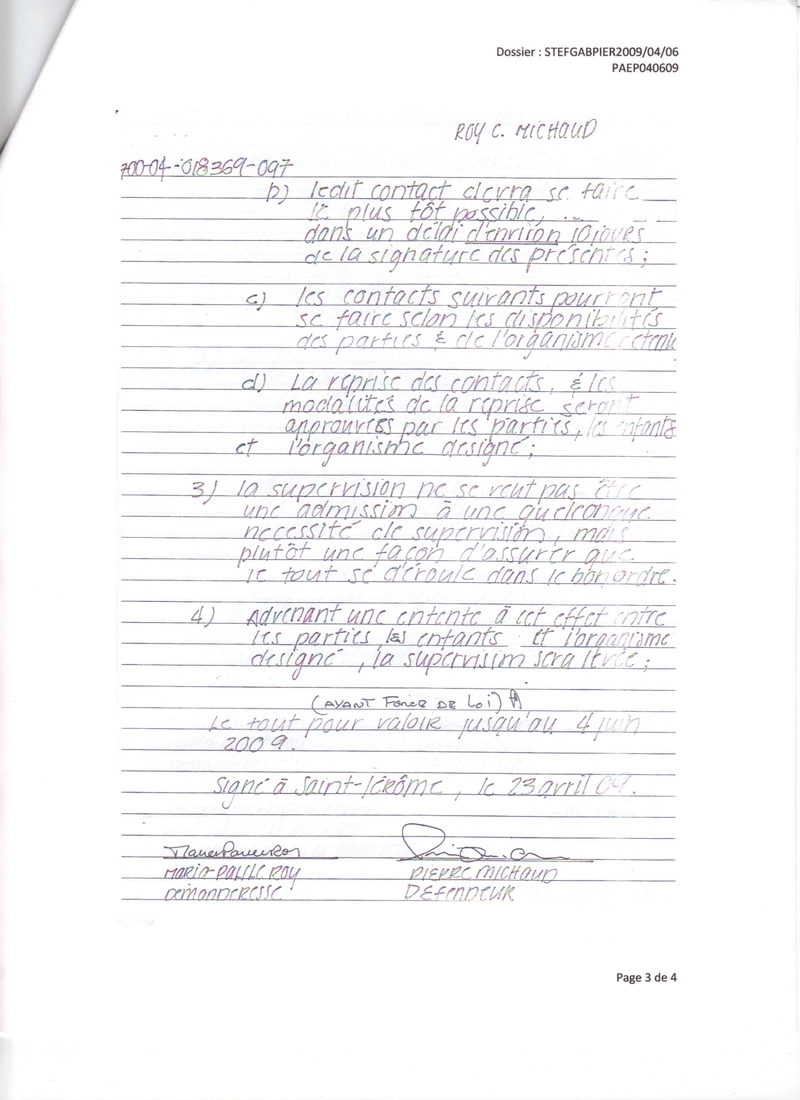 Dossier : STEFGABPIER2009/04/06
PAEP040609
ROY C. MICHAUD
700-04-018369-097
b) ledit contact devra se faire
le plus tôt possible,
dans un délai d'environ 10 jours
de la signature des présentes ;
c) les contacts suivants pourront
se faire selon les disponibilités
des parties & de l'organisme retenu
d) La reprise des contacts, & les
modalités de la reprise seront
approuvées par les parties, les enfants
et l'organisme désigné ;
3) la supervision ne se veut pas être
une admission à une quelconque
necessité de supervision, mais
plutôt une façon d'assurer que
le tout se déroule dans le bon ordre.
4) Advenant une entente à cet effet entre
les parties les enfants et l'organisme
designé, la supervision sera levée ;
(AYANT FORCE DE LOI)
Le tout pour valoir jusqu'au 4 juin
2009.
Signé à Saint-Jérôme, le 23 avril 09.
MARIE-PAULE ROY PIERRE MICHAUD
DEMANDERESSE DÉFENDEUR
Page 3 de 4